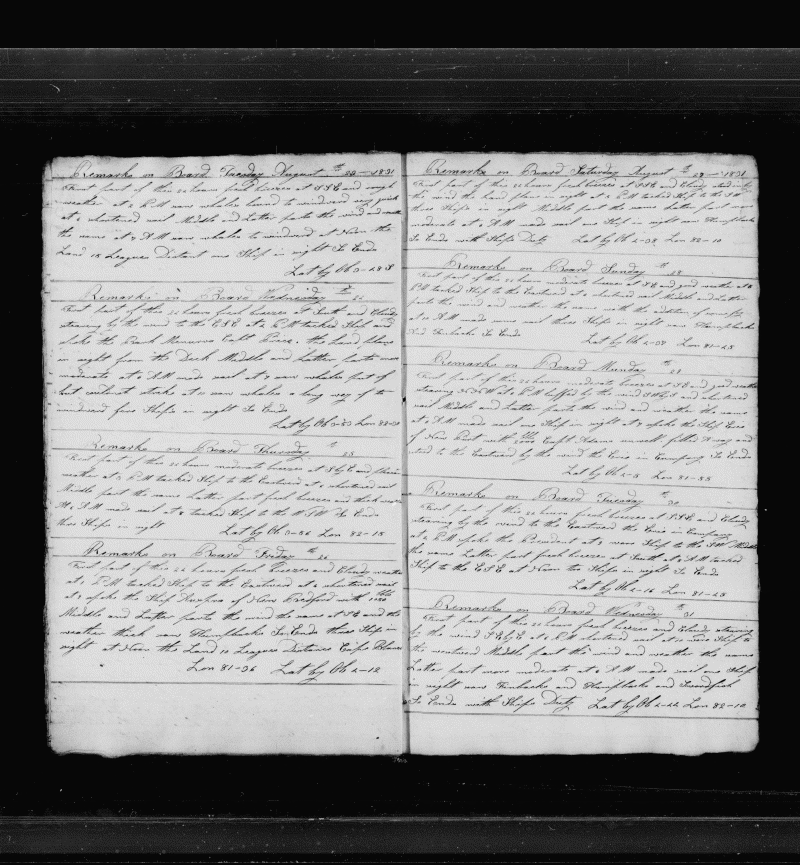 Remarks on Board Tuesday August th 23 - 1831
First part of this 24 hours fresh breezes at SSE and rough
weather at 2 PM saw whales bound to windward very quick
at 6 shortened sail Middle and Latter parts the wind and weather
the same at 7 AM saw whales to windward at Noon the
Land 18 Leagues Distant one Ship in sight So Ends
Lat by Ob 3-28 S
Remarks on Board Wednesday th 24
First part of this 24 hours fresh breezes at South and Cloudy
steering by the wind to the ESE at 2 PM tacked Ship and
spoke the Bark Minerva Capt the Land plain
in sight from the Deck Middle and Latter parts more
moderate at 6 AM made sail at 7 saw whales put of
but could not strike at 11 saw whales a long way of to
windward four Ships in sight So Ends
Lat by Ob Lon
Remarks on Board Thursday th 25
First part of this 24 hours moderate breezes at S by E and
weather at 3 PM tacked Ship to the Eastward at 6 shortened sail
Middle part the same Latter part fresh breezes and thick weather
At 6 AM made sail at 8 tacked Ship to the WSW So Ends
three Ships in sight Lat by Ob 3-06 Lon 82-15
Remarks on Board Friday th 26
First part of this 24 hours fresh breezes and Cloudy weather
at 1 PM tacked Ship to the Eastward at 6 shortened sail
at 7 spoke the Ship of New Bedford with
Middle and Latter parts the wind the same at SE and the
weather thick saw Humpbacks So Ends three Ships in
sight at Noon the Land 10 Leagues Distance Cape Blanco
Lon 81-36 Lat by Ob 4-12
Remarks on Board Saturday August th 27 - 1831
First part of this 24 hours fresh breezes at SSE and Cloudy
the wind the Land plain in sight at 2 PM tacked Ship to the
three Ships in sight Middle part the same Latter part more
moderate at 6 AM made sail one Ship in sight saw Humpbacks
So Ends with Ships Duty Lat by Ob 4-08 Lon 82-10
Remarks on Board Sunday th 28
First part of this 24 hours moderate breezes at SE and good weather at 2
PM tacked Ship to the Eastward at 6 shortened sail Middle and Latter
parts the wind and weather the same with the addition of some fog
at 6 AM made sail three Ships in sight saw Humpbacks
And Finbacks So Ends Lat by Ob Lon 81-25
Remarks on Board Monday th 29
First part of this 24 hours moderate breezes at SE and good weather
steering at 6 PM luffed by the wind and shortened
sail Middle and Latter parts the wind and weather the same
at 6 AM made sail one Ship in sight at 7 spoke the Ship Erie
of New Port with Capt Adams unwell filled away and
stood to the Eastward by the wind the Erie in Company So Ends
Lat by Ob Lon 81-35
Remarks on Board Tuesday th 30
First part of this 24 hours fresh breezes at SSE and Cloudy
steering by the wind to the Eastward the Erie in Company
at 4 PM spoke the President at 7 wore Ship to the SW Middle
the same Latter part fresh breezes at South at 6 AM tacked
Ship to the ESE at Noon two Ships in sight So Ends
Lat by Ob Lon 81-25
Remarks on Board Wednesday th 31
First part of this 24 hours fresh breezes and Cloudy steering
by the wind SE by E at 6 PM shortened sail at wore Ship to
the westward Middle part the wind and weather the same
Latter part more moderate at 6 AM made sail one Ship
in sight saw Finbacks and Humpbacks and Swordfish
So Ends with Ships Duty Lat by Ob Lon 82-10